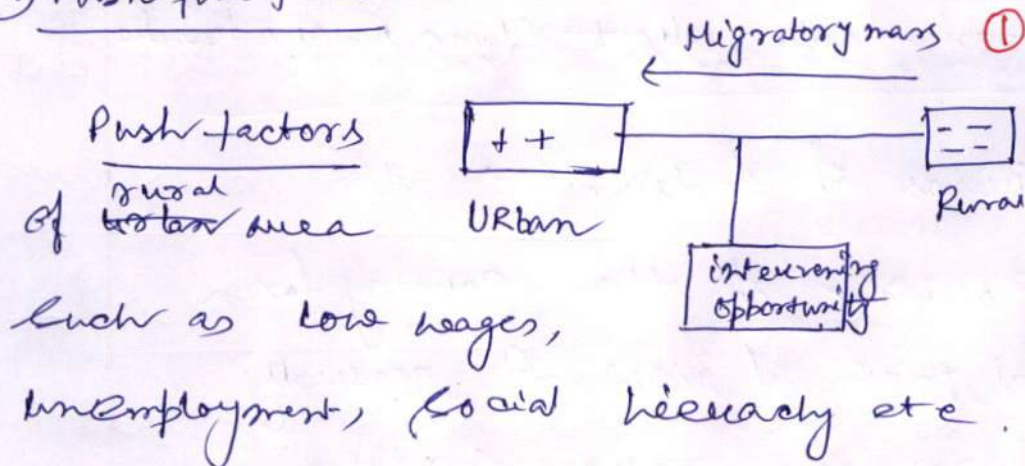 Migratory mass ①
Push factors
++
-- --
of rural urban area
URban
Rural
intervening
opportunity
Such as low wages,
unemployment, social hierachy etc.